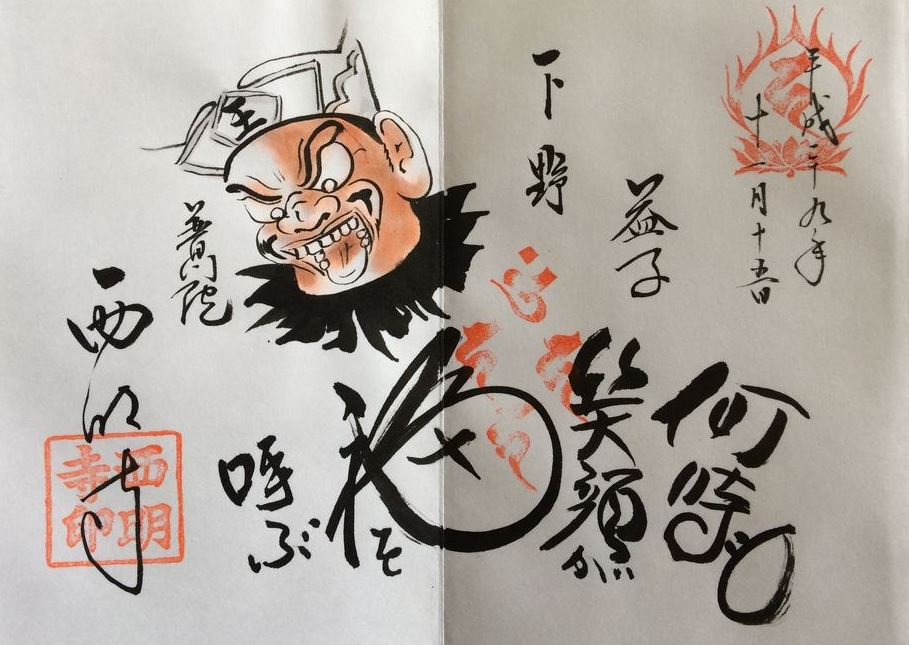 平成二十九年
十一月十五日
益子
下野
何時も
笑顔が
福を
呼ぶ
王
普門院
西明寺
西明寺印